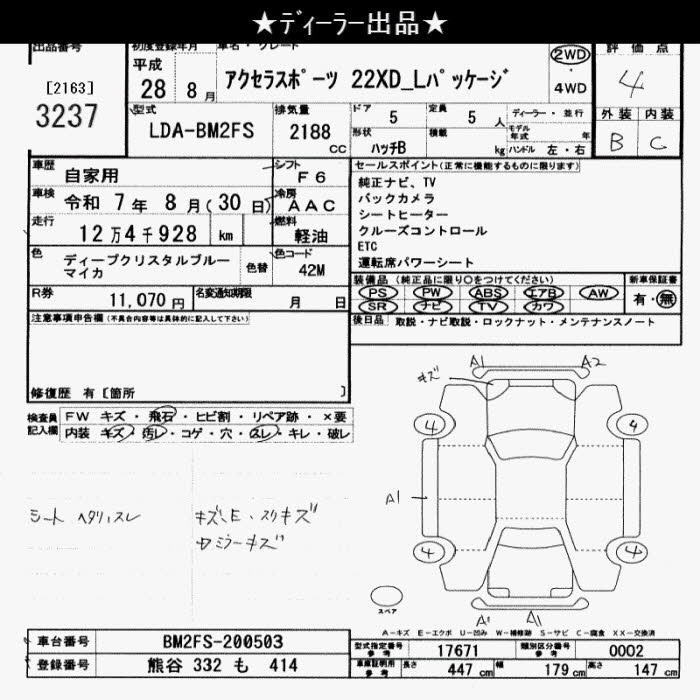 ★ディーラー出品★
出品番号
[2163]
3237
初度登録年月
平成
28年
8月
車名・グレード
アクセラスポーツ 22XD_Lパッケージ
2WD
・
4WD
評価点
4
外装 内装
B C
型式
LDA-BM2FS
排気量
2188
CC
ドア 5
定員 5 人
形状 ハッチB
積載 kg
ディーラー・並行
モデル年式 年
ハンドル 左・右
車歴 自家用
シフト F6
車検 令和 7年 8月(30日)
冷房 AAC
走行 12万4千928 km
燃料 軽油
色 ディープクリスタルブルー
マイカ
色替
色コード 42M
R券 11,070円
名変通知期限 月 日
セールスポイント(正常に機能するものに限ります)
純正ナビ、TV
バックカメラ
シートヒーター
クルーズコントロール
ETC
運転席パワーシート
装備品(純正品に限り○をつけてください)
PS PW ABS エアB AW
SR ナビ TV カワ
新車保証書
有・無
後日品 取説・ナビ取説・ロックナット・メンテナンスノート
注意事項申告欄(不具合内容等は具体的に記入して下さい)
修復歴 有[箇所 ]
検査員
記入欄
FW キズ・飛石・ヒビ割・リペア跡・×要
内装 キズ・汚レ・コゲ・穴・スレ・キレ・破レ
シート ヘタリ、スレ
キズ、E・スリキズ
ミラーキズ
キズ
A1
A2
4
4
A1
4
4
スペア
A1
A1
A-キズ E-エクボ U-凹み W-補修跡 S-サビ C-腐食 XX-交換済
車台番号 BM2FS-200503
登録番号 熊谷 332 も 414
型式指定番号
参考 17671
類別区分番号
参考 0002
車庫証明用
参考
長さ 447 cm
幅 179 cm
高さ 147 cm